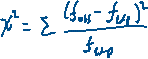 χ² = Σ (f_obs - f_exp)² / f_exp